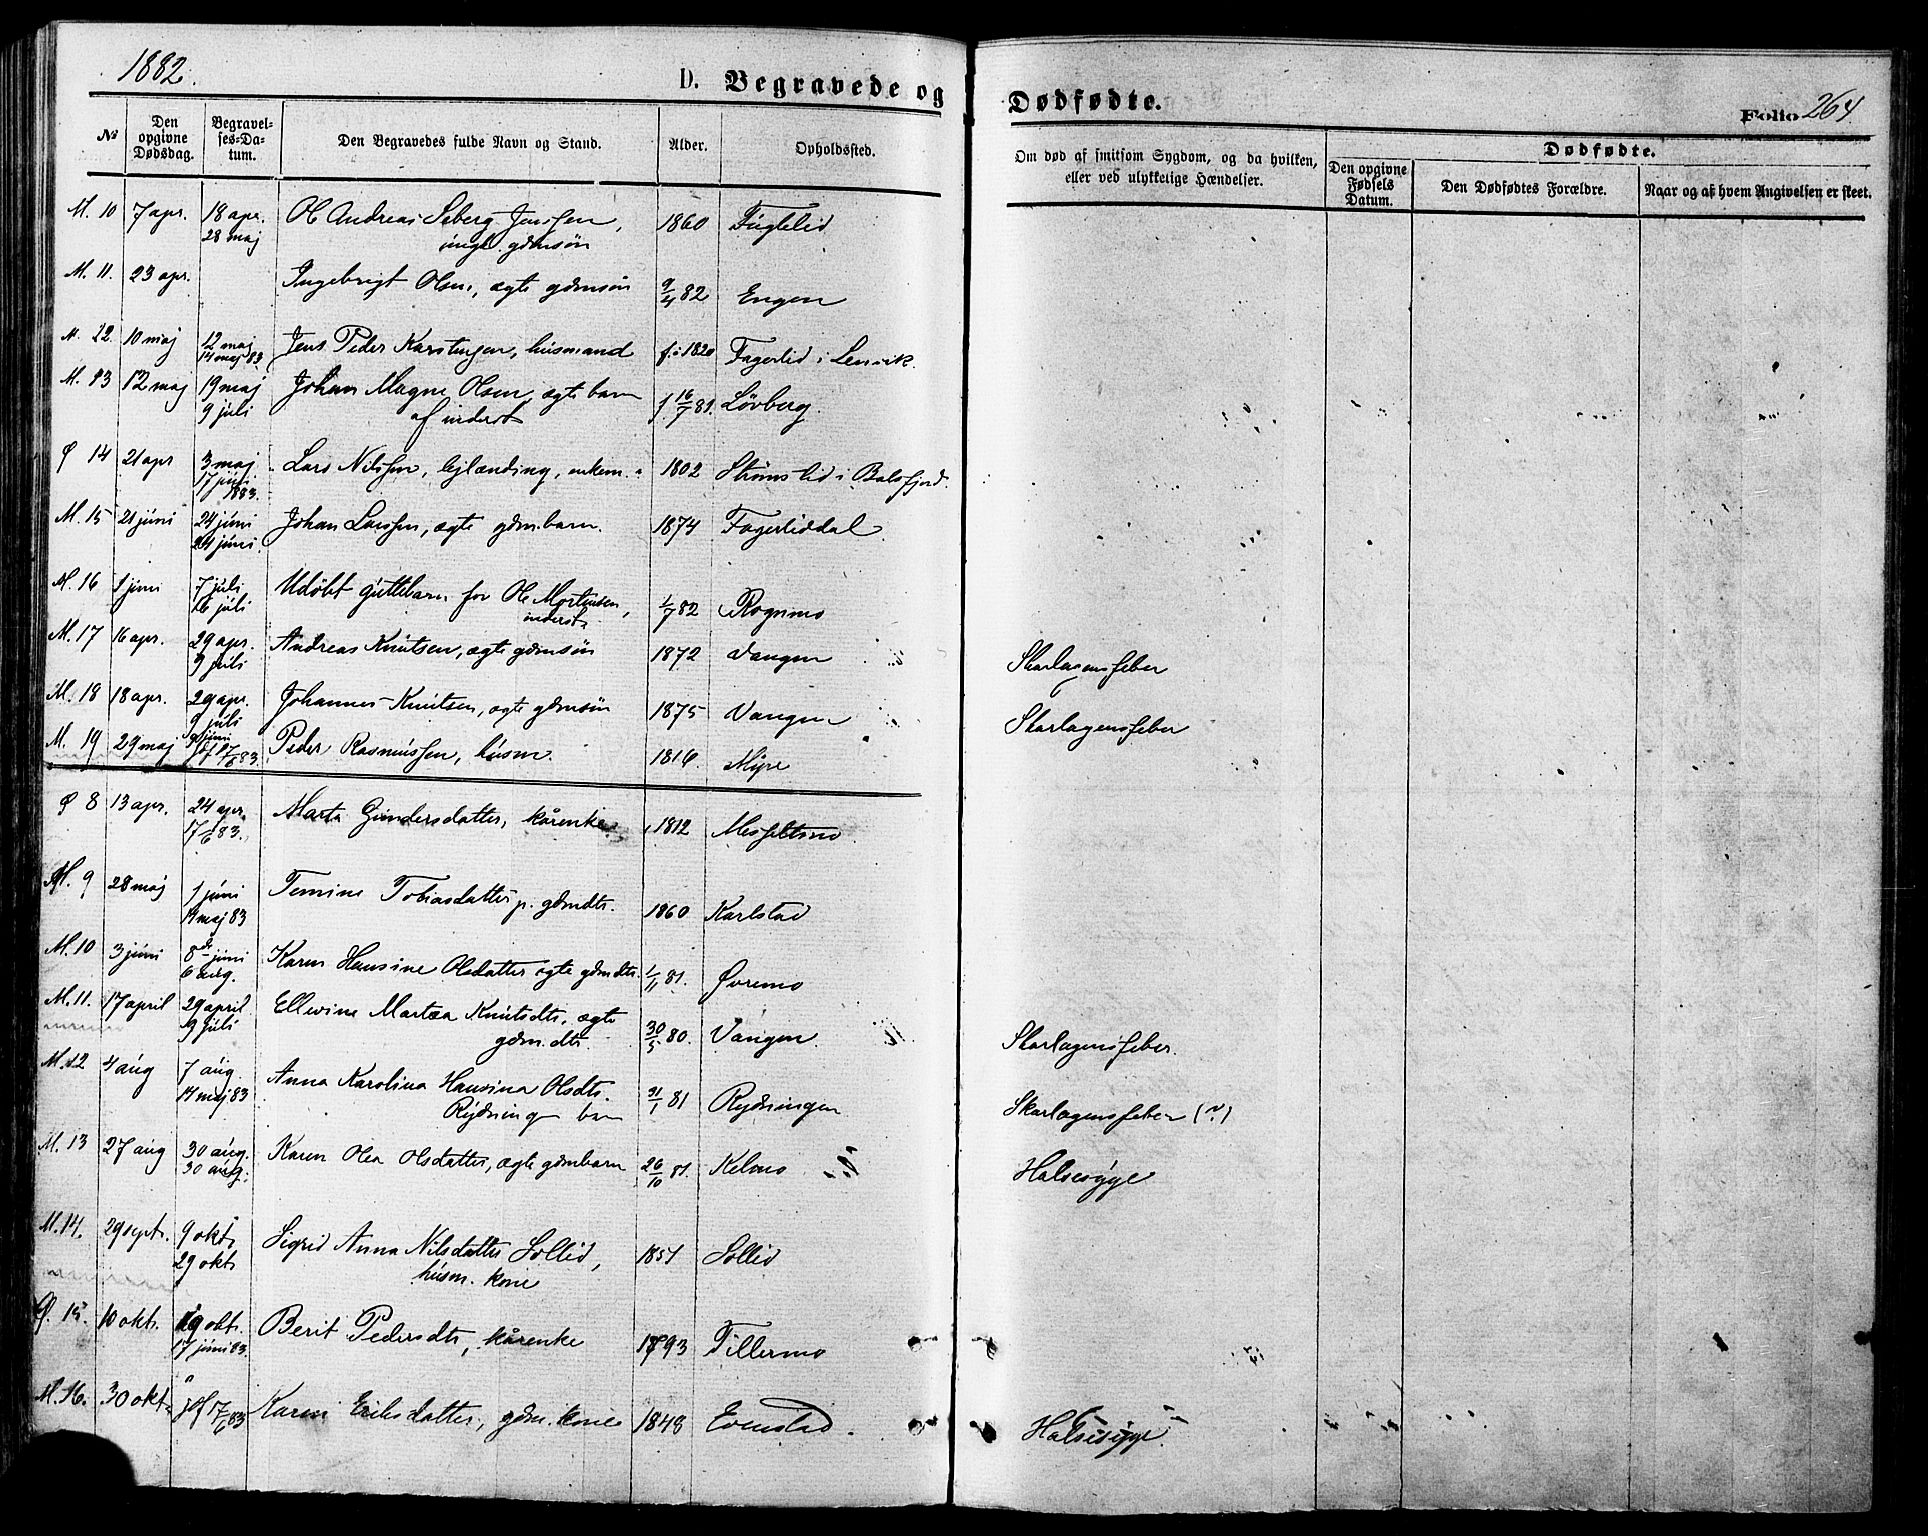 1882.
D. Begravede og Dødfødte.
Folio 264
№ Den opgivne Dødsdag. Begravelses-Datum. Den Begravedes fulde Navn og Stand. Alder. Opholdssted. Om død af smitsom Sygdom, og da hvilken, eller ved ulykkelige Hændelser. Dødfødte.
Den opgivne Fødsels Datum. Den Dødfødtes Forældre. Naar og af hvem Angivelsen er skeet.
M. 10 7 apr. 18 apr. Ole Andreas Seberg Jenssen, 1860 Fuglelid
28 maj ungk. gdmsøn
M. 11. 23 apr. Ingebrigt Olsen, ægte gdmsøn 9/4 82 Engen
M. 12. 10 maj 12 maj Jens Peder Karstensen, husmand f. i 1820 Fagerlid i Lenvik.
14 maj 83
M. 13 12 maj 19 maj Johan Magnus Olsen, ægte barn f 16/7 81. Løvberg.
9 juli af inderst
Ø 14 21 apr 3 maj Lars Nilssen, lejlænding, enkem. 1802 Strømslid i Balsfjord.
17 juni 1883.
M. 15 21 juni 24 juni Johan Larssen, ægte gdm.barn. 1874 Fagerliddal
24 juni.
M. 16 1 juni 7 juli Udøbt guttebarn for Ole Mortensen, 1/7 82 Rognmo
16 juli inderst.
M. 17 16 apr. 29 apr. Andreas Knutsen, ægte gdmsøn 1872 Vangen Skarlagensfeber
9 juli
M. 18 18 apr. 29 apr. Johannes Knutsen, ægte gdmsøn 1875 Vangen Skarlagensfeber
9 juli
M. 19 29 maj 9 juni Peder Rasmussen, husm. 1816 Myre
jdf 17/6 83.
Ø 8 13 apr. 24 apr. Marta Gundersdatter, kårenke. 1812 Messeltsmo
17/6 83.
M. 9 28 maj 1 juni Temine Tobiasdatter p. gdmdtr. 1860 Karlstad
14 maj 83
M. 10 3 juni 8de juni Karen Hansine Olsdatter ægte gdmdtr. 1/11 81. Øvremo
6 aug.
M. 11. 17 april 29 april Ellevine Martea Knutsdtr. ægte 30/5 80. Vangen Skarlagensfeber.
9 juli gdm. dtr.
M. 12 4 aug 7 aug. Anna Karolina Hansina Olsdtr. 31/1 81 Rydningen Skarlagensfeber (?)
14 maj 83 Rydningen barn
M. 13 27 aug 30 aug. Karen Olea Olsdatter, ægte gdmbarn 26/10 81. Kelmo Halsesyge
30 aug.
M. 14. 29 sept. 9 okt. Sigrid Anna Nilsdatter Sollid, 1851 Sollid
29 okt husm. kone
Ø. 15 10 okt. 19 okt. Berit Pedersdtr, kårenke 1793 Fillermo
17 juni 83.
M. 16. 30 okt. jdf 17/6 83 Karen Eriksdatter, gdm. kone 1848 Evenstad. Halsesyge.